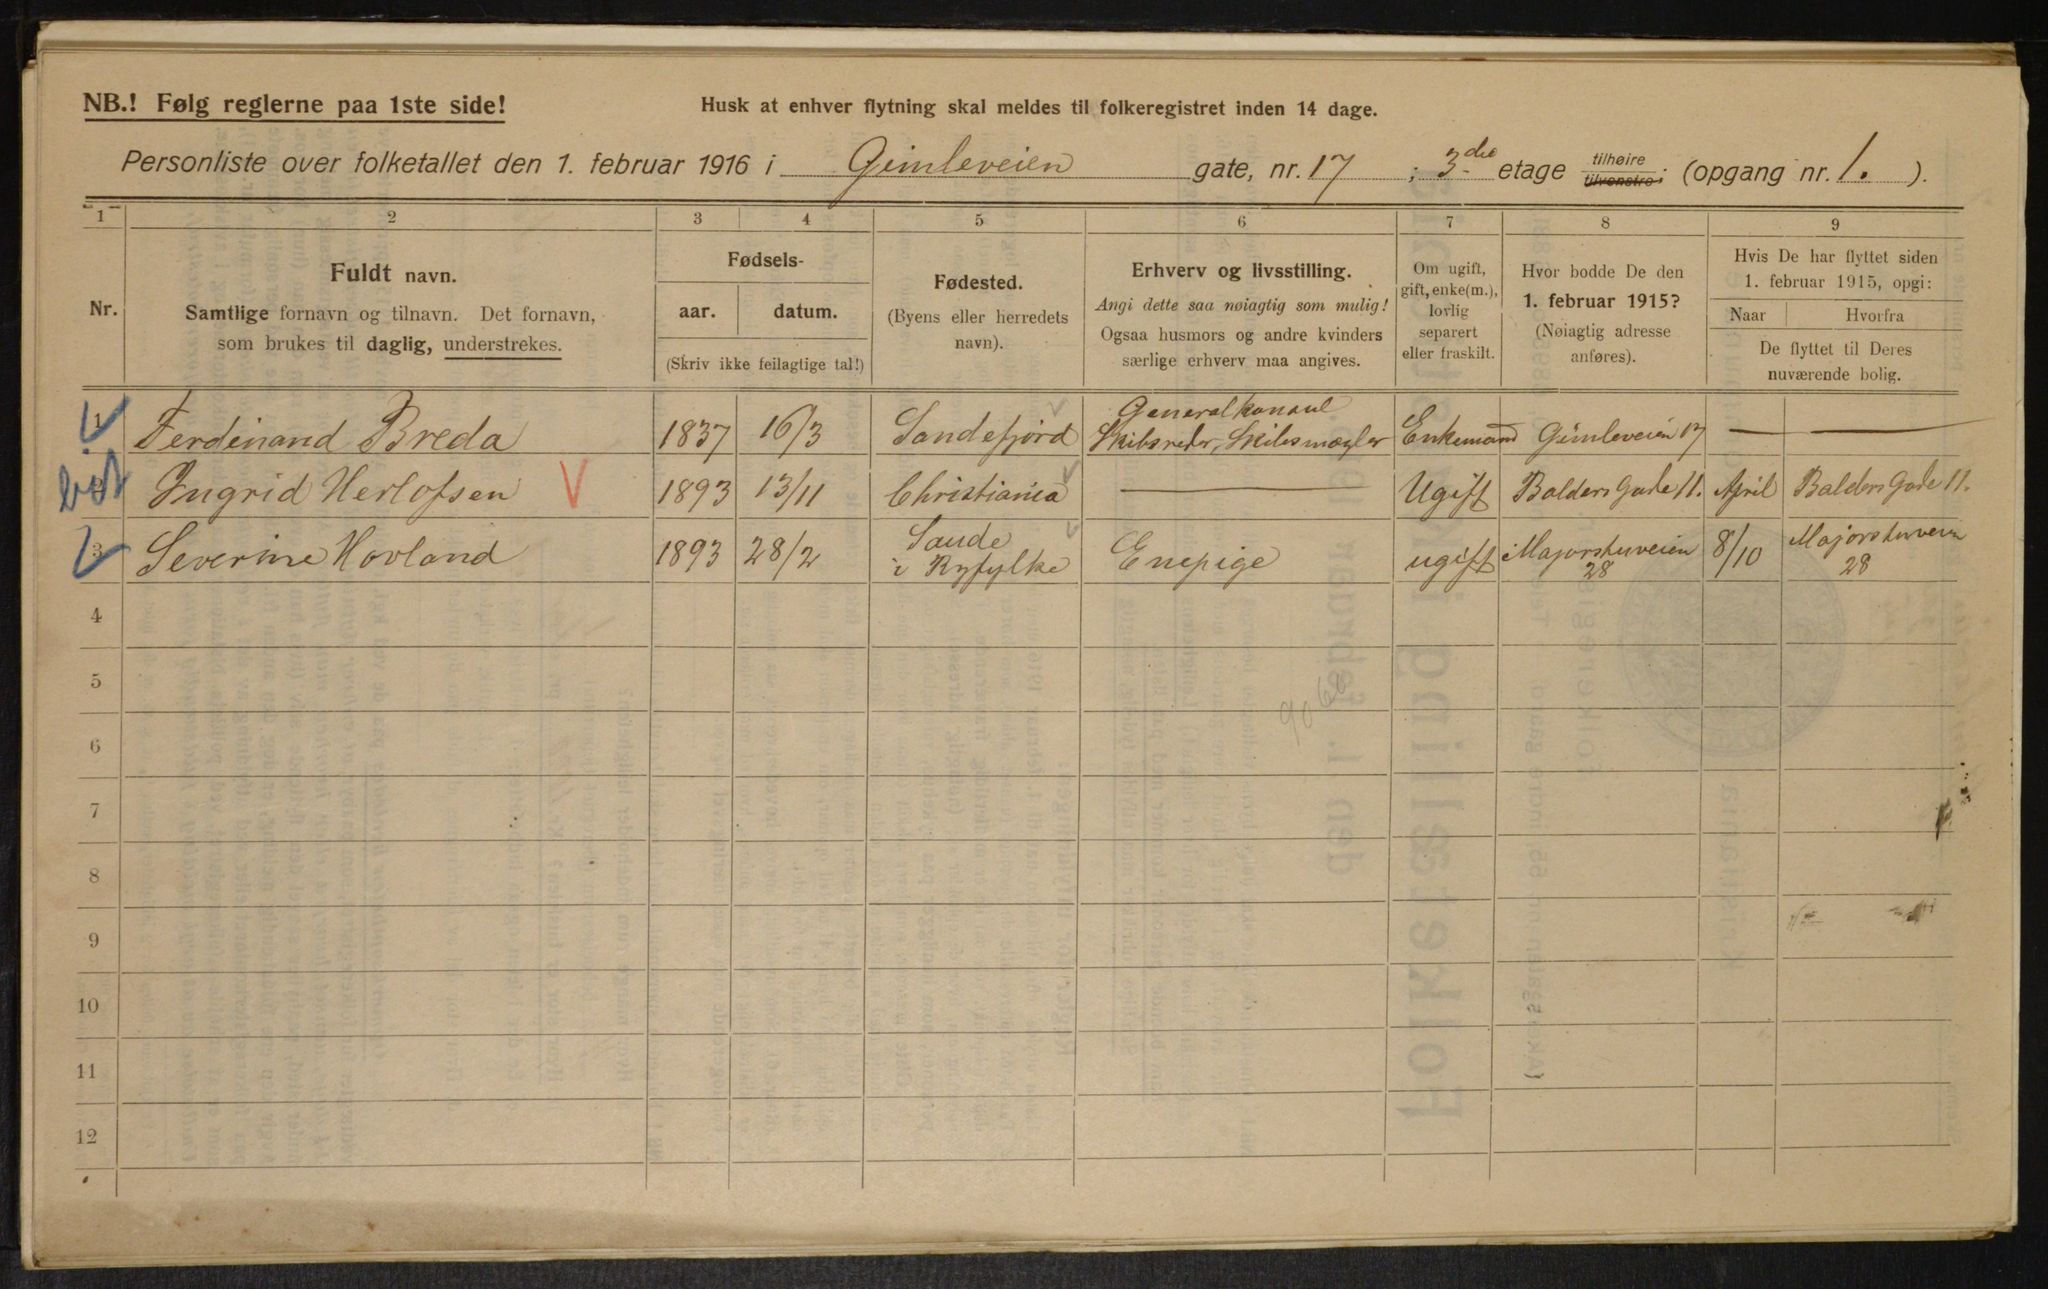 NB.! Følg reglerne paa 1ste side!
Husk at enhver flytning skal meldes til folkeregistret inden 14 dage.
Personliste over folketallet den 1. februar 1916 i Gimleveien gate, nr. 17 ; 3die etage tilhøire tilvenstre; (opgang nr. 1. ).
1 2 3 4 5 6 7 8 9
Nr.
Fuldt navn.
Samtlige fornavn og tilnavn. Det fornavn,
som brukes til daglig, understrekes.
Fødsels-
aar. datum.
(Skriv ikke feilagtige tal!)
Fødested.
(Byens eller herredets
navn).
Erhverv og livsstilling.
Angi dette saa nøiagtig som mulig!
Ogsaa husmors og andre kvinders
særlige erhverv maa angives.
Om ugift,
gift, enke(m.),
lovlig
separert
eller fraskilt.
Hvor bodde De den
1. februar 1915?
(Nøiagtig adresse
anføres).
Hvis De har flyttet siden
1. februar 1915, opgi:
Naar Hvorfra
De flyttet til Deres
nuværende bolig.
1 Ferdinand Breda 1837 16/3 Sandefjord Generalkonsul Skibsreder, Skibsmægler Enkemand Gimleveien 17 — —
Ingrid Herlofsen V 1893 13/11 Christiania — Ugift Balders Gade 11. April Balders Gade 11.
3 Severine Hovland 1893 28/2 Saude i Ryfylke Enepige ugift Majorstuveien 28 8/10 Majorstuveien 28
4
5
6
7
8
9
10
11
12